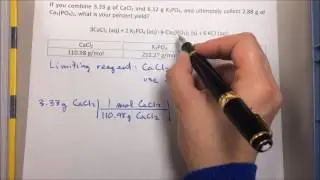 If you combine 3.33 g of CaCl₂ and 6.12 g K₃PO₄, and ultimately collect 2.88 g of
Ca₃(PO₄)₂, what is your percent yield?
3CaCl₂ (aq) + 2 K₃PO₄ (aq) → Ca₃(PO₄)₂ (s) + 6 KCl (aq)
CaCl₂ K₃PO₄
110.98 g/mol 212.27 g/mol
Limiting reagent: CaCl
use
3.33g CaCl₂ | 1 mol CaCl₂
110.98g CaCl₂